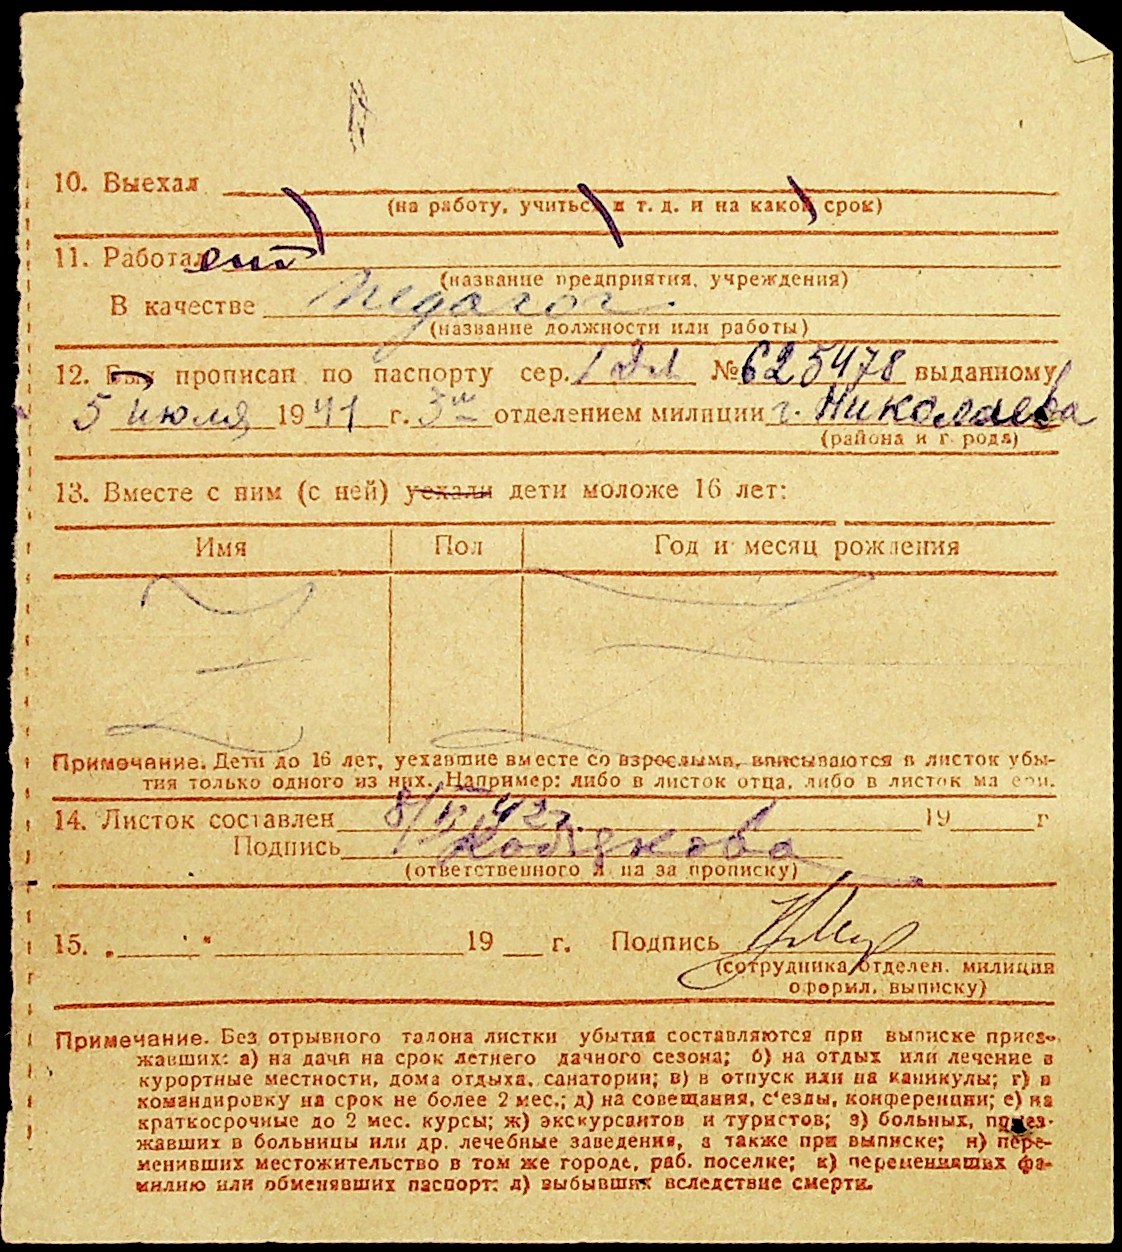 10. Выехал
(на работу, учиться и т. д. и на какой срок)
11. Работает
(название предприятия, учреждения)
В качестве Педагог
(название должности или работы)
12. Был прописан по паспорту сер. № 625478 выданному
5 июля 1941 г. 3им отделением милиции г. Николаева
(района и г рода)
13. Вместе с ним (с ней) уехали дети моложе 16 лет:
Имя Пол Год и месяц рождения
Примечание. Дети до 16 лет, уехавшие вместе со взрослыми, вписываются в листок убы-
тия только одного из них. Например: либо в листок отца, либо в листок ма ери.
14. Листок составлен 42г. 19 г
Подпись
(ответственного л на за прописку)
15. „ " 19 г. Подпись
(сотрудника отделен. милиции
оформл. выписку)
Примечание. Без отрывного талона листки убытия составляются при выписке приез-
жавших: а) на дачи на срок летнего дачного сезона; б) на отдых или лечение в
курортные местности, дома отдыха, санатории; в) в отпуск или на каникулы; г) в
командировку на срок не более 2 мес.; д) на совещания, с'езды, конференции; е) на
краткосрочные до 2 мес. курсы; ж) экскурсантов и туристов; з) больных, приез-
жавших в больницы или др. лечебные заведения, а также при выписке; и) пере-
менивших местожительство в том же городе, раб. поселке; к) переменивших фа-
милию или обменявших паспорт; л) выбывших вследствие смерти.